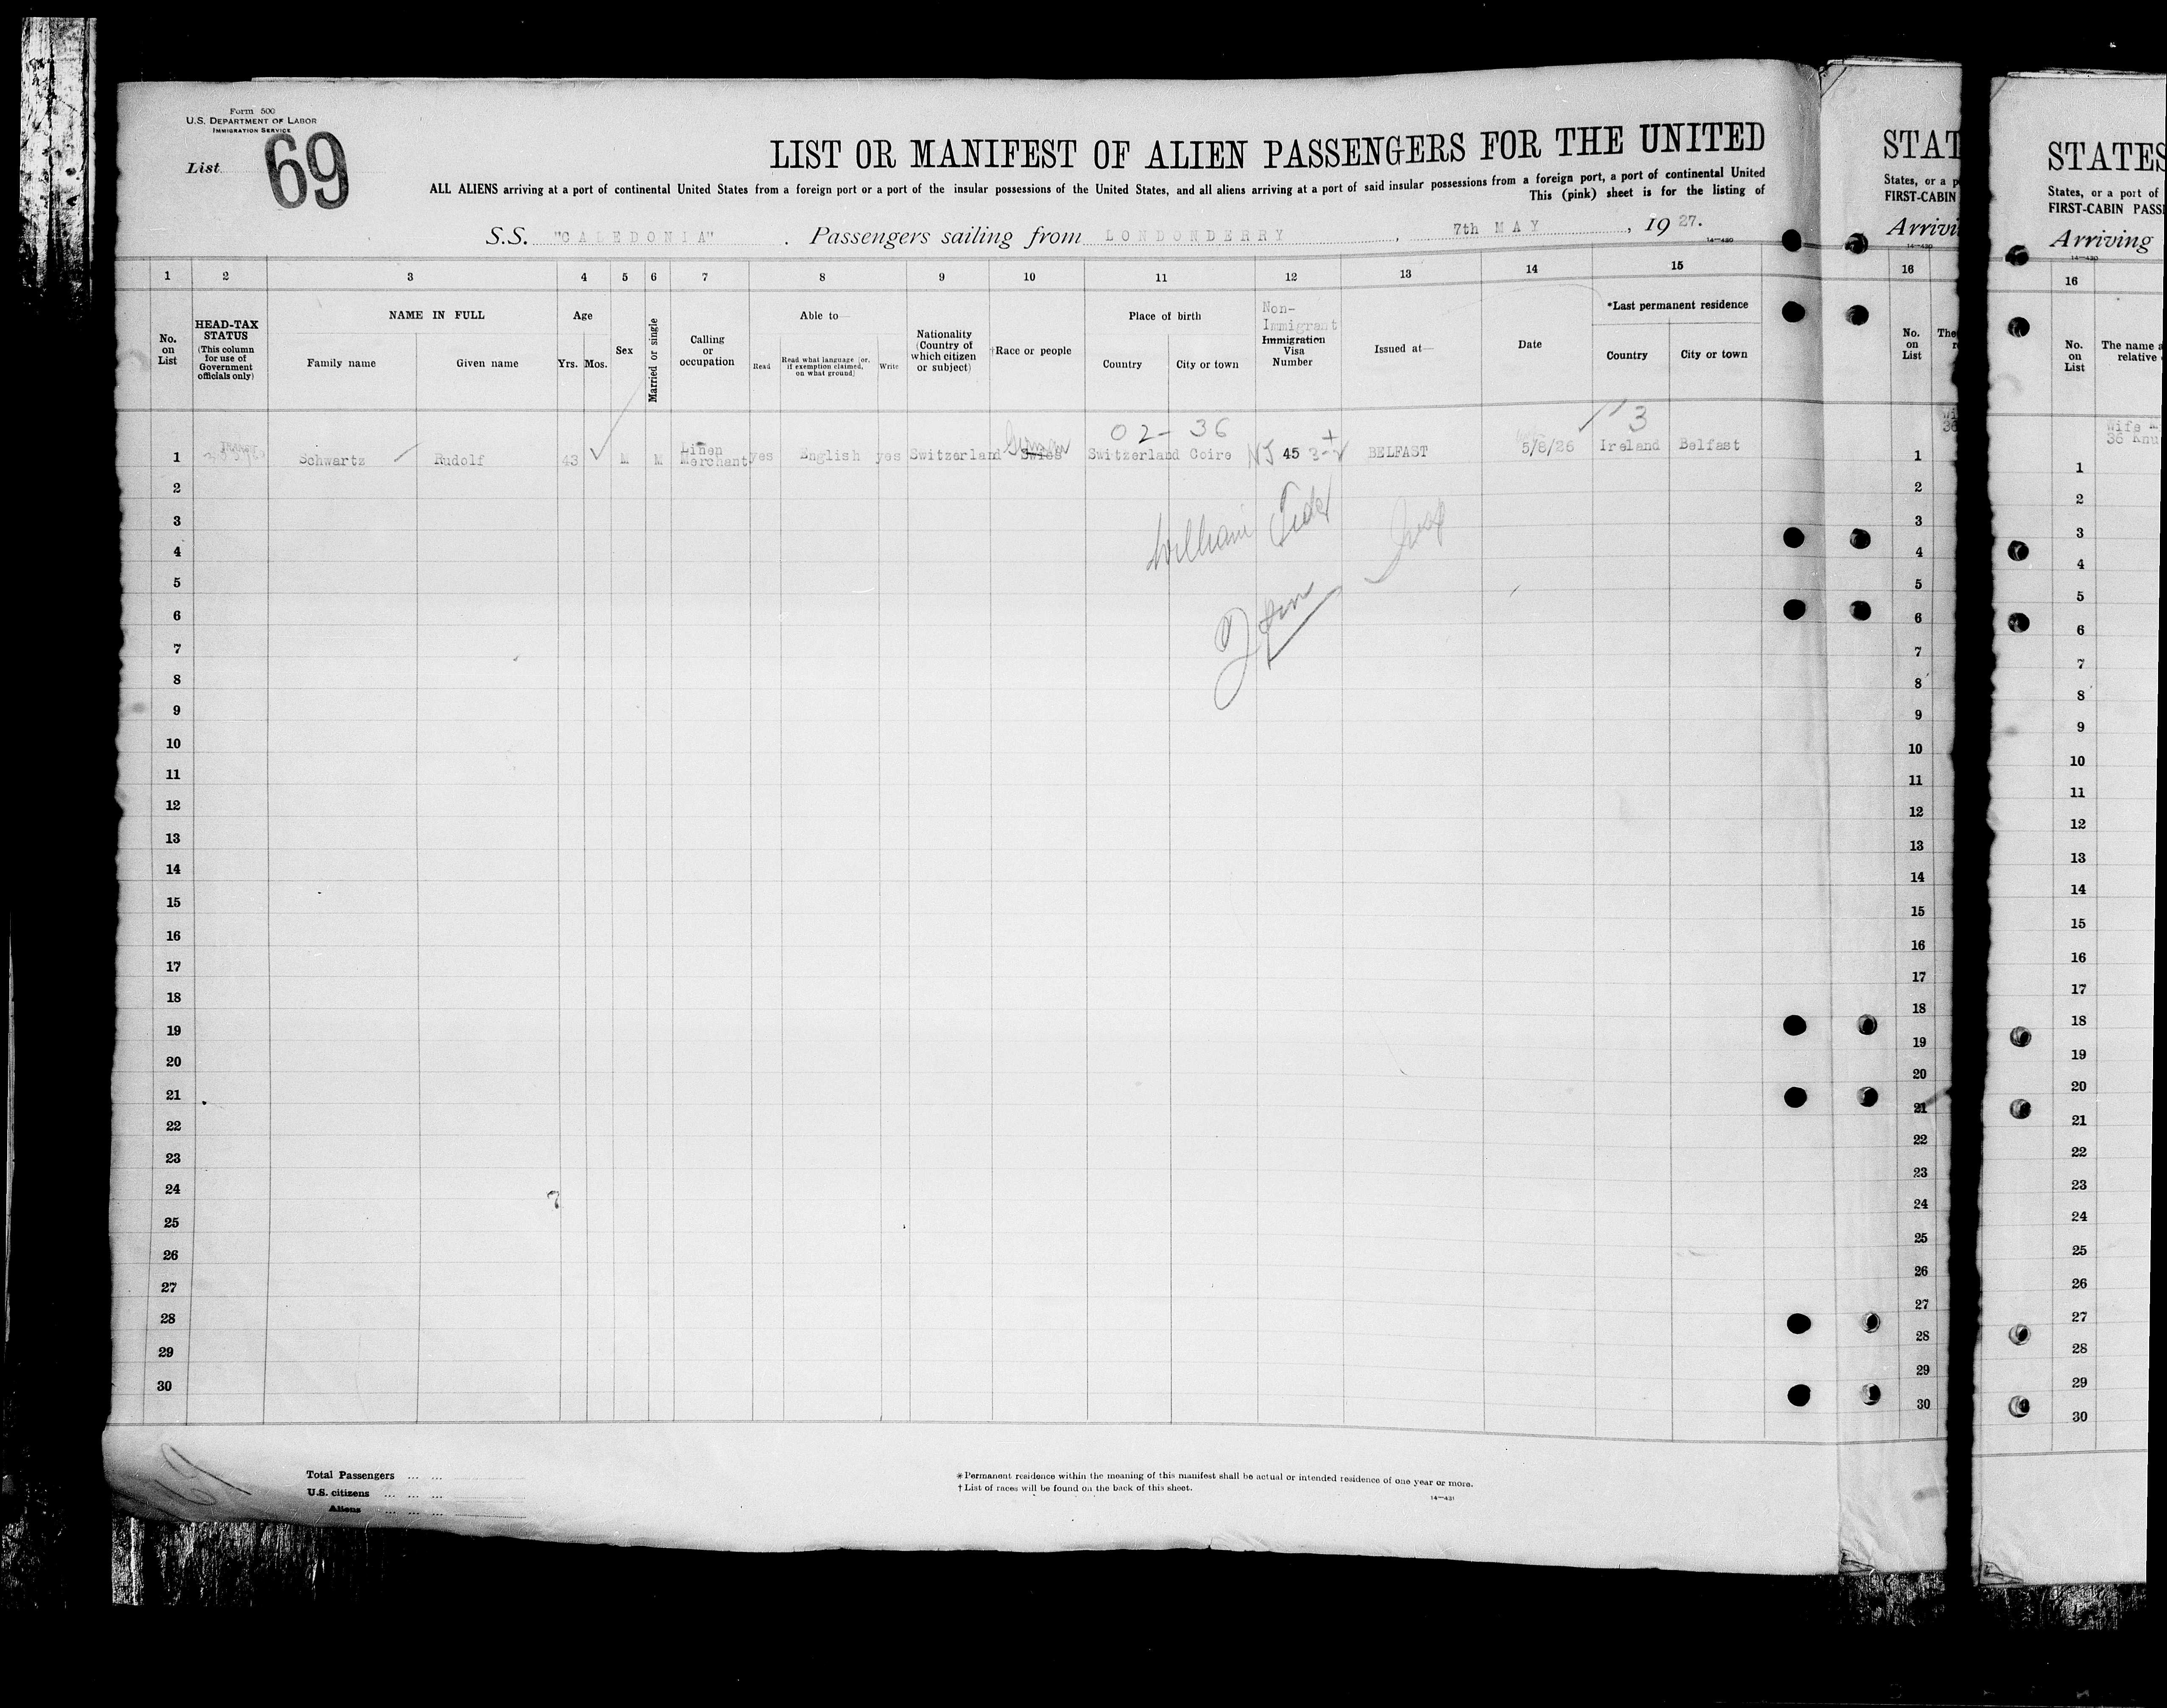 Form 500
U.S. DEPARTMENT OF LABOR
IMMIGRATION SERVICE
List 69
LIST OR MANIFEST OF ALIEN PASSENGERS FOR THE UNITED
ALL ALIENS arriving at a port of continental United States from a foreign port or a port of the insular possessions of the United States, and all aliens arriving at a port of said insular possessions from a foreign port, a port of continental United
This (pink) sheet is for the listing of
S.S. "CALEDONIA". Passengers sailing from LONDONDERRY, 7th MAY, 1927.
14—430
1 2 3 4 5 6 7 8 9 10 11 12 13 14 15
No. on List
HEAD-TAX STATUS (This column for use of Government officials only)
NAME IN FULL
Family name Given name
Age
Yrs. Mos.
Sex
Married or single
Calling or occupation
Able to—
Read Read what language [or, if exemption claimed, on what ground] Write
Nationality (Country of which citizen or subject)
†Race or people
Place of birth
Country City or town
Non-Immigrant
Immigration Visa Number
Issued at—
Date
*Last permanent residence
Country City or town
02- 36
3
1 Schwartz Rudolf 43 M M Linen Merchant yes English yes Switzerland Swiss German Switzerland Coire 45 BELFAST 5/8/26 Ireland Belfast
2
3
William
4
5
6
7
8
9
10
11
12
13
14
15
16
17
18
19
20
21
22
23
24
25
26
27
28
29
30
Total Passengers
U.S. citizens
Aliens
* Permanent residence within the meaning of this manifest shall be actual or intended residence of one year or more.
† List of races will be found on the back of this sheet.
14—431
STAT
States, or a p
FIRST-CABIN
Arrivi
14—430
16
No. on List
The
1
2
3
4
5
6
7
8
9
10
11
12
13
14
15
16
17
18
19
20
21
22
23
24
25
26
27
28
29
30
STATES
States, or a port of
FIRST-CABIN PASS
Arriving
14—430
16
No. on List
The name a
relative
Wife
36
1
2
3
4
5
6
7
8
9
10
11
12
13
14
15
16
17
18
19
20
21
22
23
24
25
26
27
28
29
30